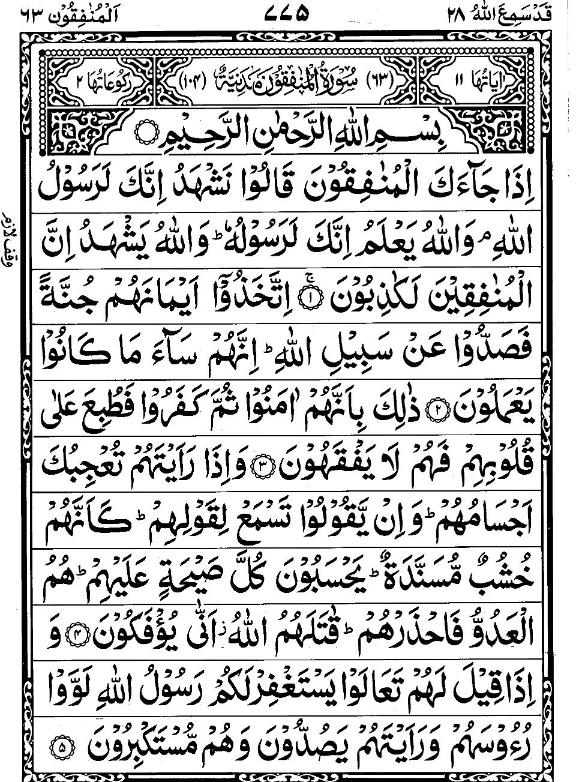 قَدْ سَمِعَ اللّٰهُ ٢٨
٧٧٥
اَلْمُنٰفِقُوْن ٦٣
اٰيَاتُهَا ١١
(٦٣) سُوْرَةُ الْمُنٰفِقُوْنَ مَدَنِيَّةٌ (١٠٤)
رُكُوْعَاتُهَا ٢
بِسْمِ اللّٰهِ الرَّحْمٰنِ الرَّحِيْمِ
اِذَا جَآءَكَ الْمُنٰفِقُوْنَ قَالُوْا نَشْهَدُ اِنَّكَ لَرَسُوْلُ
اللّٰهِ ۘ وَاللّٰهُ يَعْلَمُ اِنَّكَ لَرَسُوْلُهٗ ؕ وَاللّٰهُ يَشْهَدُ اِنَّ
الْمُنٰفِقِيْنَ لَكٰذِبُوْنَ ۚ ﴿١﴾ اِتَّخَذُوْۤا اَيْمَانَهُمْ جُنَّةً
فَصَدُّوْا عَنْ سَبِيْلِ اللّٰهِ ؕ اِنَّهُمْ سَآءَ مَا كَانُوْا
يَعْمَلُوْنَ ﴿٢﴾ ذٰلِكَ بِاَنَّهُمْ اٰمَنُوْا ثُمَّ كَفَرُوْا فَطُبِعَ عَلٰى
قُلُوْبِهِمْ فَهُمْ لَا يَفْقَهُوْنَ ﴿٣﴾ وَاِذَا رَاَيْتَهُمْ تُعْجِبُكَ
اَجْسَامُهُمْ ؕ وَاِنْ يَّقُوْلُوْا تَسْمَعْ لِقَوْلِهِمْ ؕ كَاَنَّهُمْ
خُشُبٌ مُّسَنَّدَةٌ ؕ يَحْسَبُوْنَ كُلَّ صَيْحَةٍ عَلَيْهِمْ ؕ هُمُ
الْعَدُوُّ فَاحْذَرْهُمْ ؕ قٰتَلَهُمُ اللّٰهُ ؗ اَنّٰى يُؤْفَكُوْنَ ﴿٤﴾ وَ
اِذَا قِيْلَ لَهُمْ تَعَالَوْا يَسْتَغْفِرْ لَكُمْ رَسُوْلُ اللّٰهِ لَوَّوْا
رُءُوْسَهُمْ وَرَاَيْتَهُمْ يَصُدُّوْنَ وَهُمْ مُّسْتَكْبِرُوْنَ ﴿٥﴾
وقف لازم